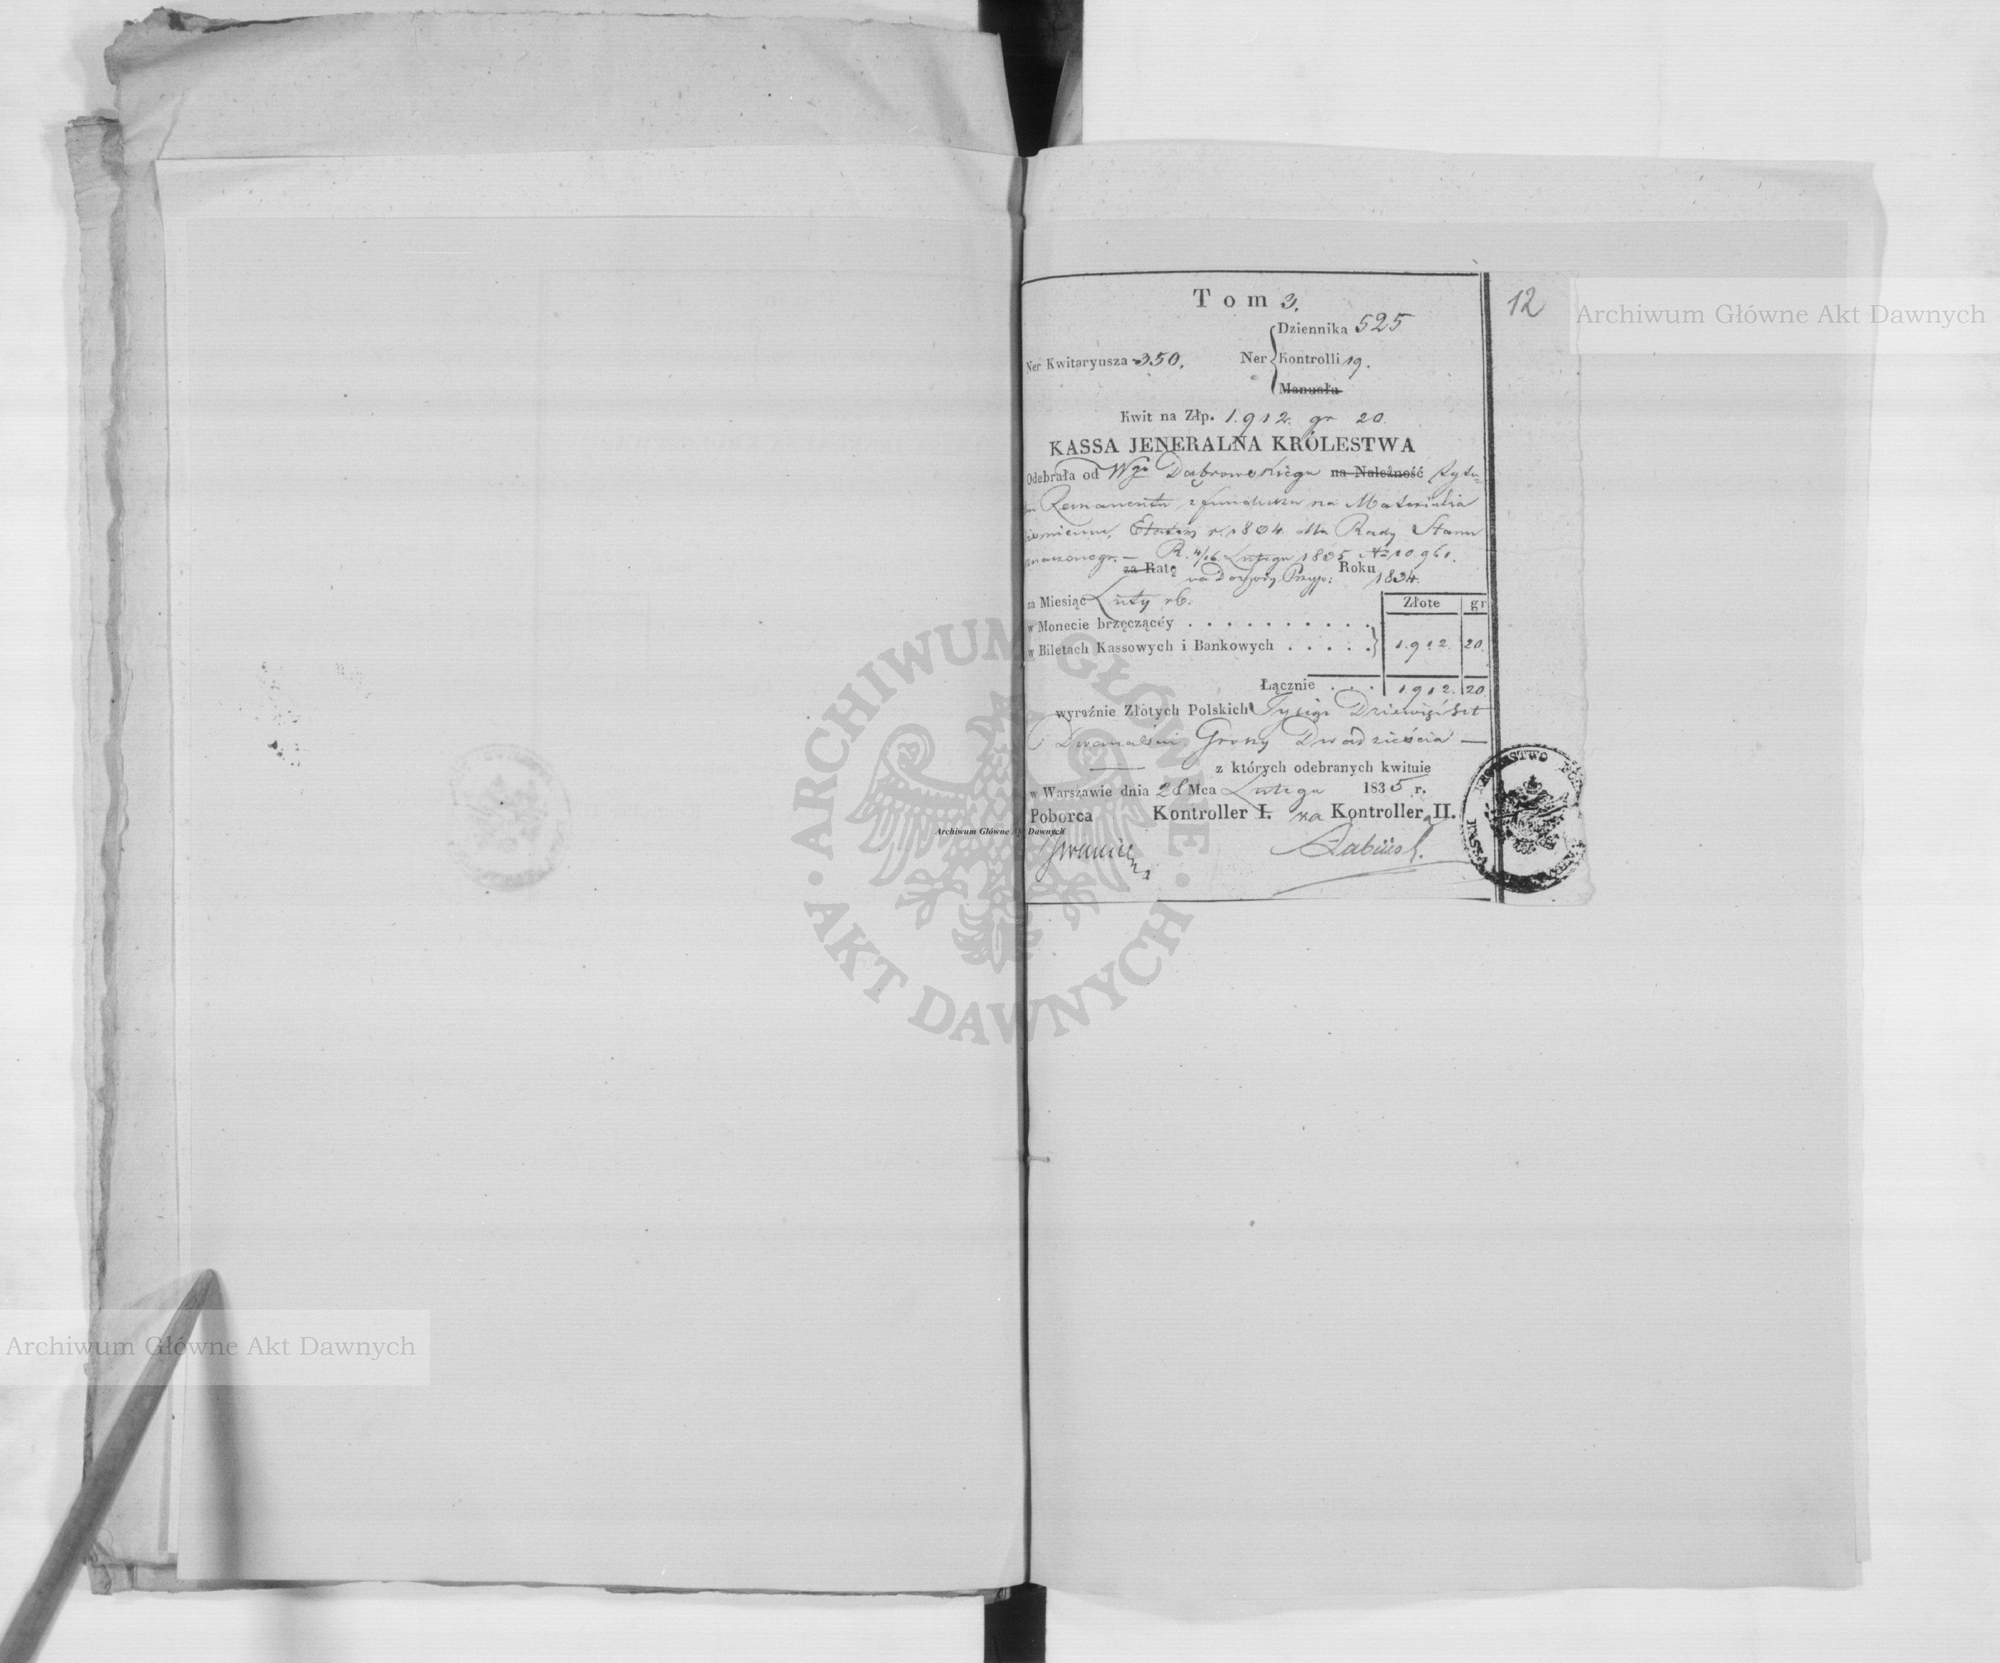 Tom 3.
12
Dziennika 525
Ner Kwitaryusza 350. Ner Kontrolli 19.
Manuału
Kwit na Złp. 1912. gr 20.
KASSA JENERALNA KRÓLESTWA
Odebrała od Wgo Dąbrowskiego na Należność Tytu-
łu Remanentu z funduszu na Materialia
piśmienne, Etatem r. 1834 dla Rady Stanu
R. 4/16 Lutego 1835 No 10,961.
za Ratę na Dochody Przyp: Roku 1834.
za Miesiąc Luty rb.
Złote gr
w Monecie brzęczącéy . . . . . . . . . .
w Biletach Kassowych i Bankowych . . . . . 1.912. 20.
Łącznie . . . 1.912. 20.
wyraźnie Złotych Polskich Tysiąc Dziewięćset
Dwanaście Groszy Dwadzieścia —
z których odebranych kwituie
w Warszawie dnia 28 Mca Lutego 1835 r.
Poborca Kontroller I. za Kontroller II.
KRÓLESTWO
Archiwum Główne Akt Dawnych
Archiwum Główne Akt Dawnych
Archiwum Główne Akt Dawnych
ARCHIWUM GŁÓWNE
AKT DAWNYCH